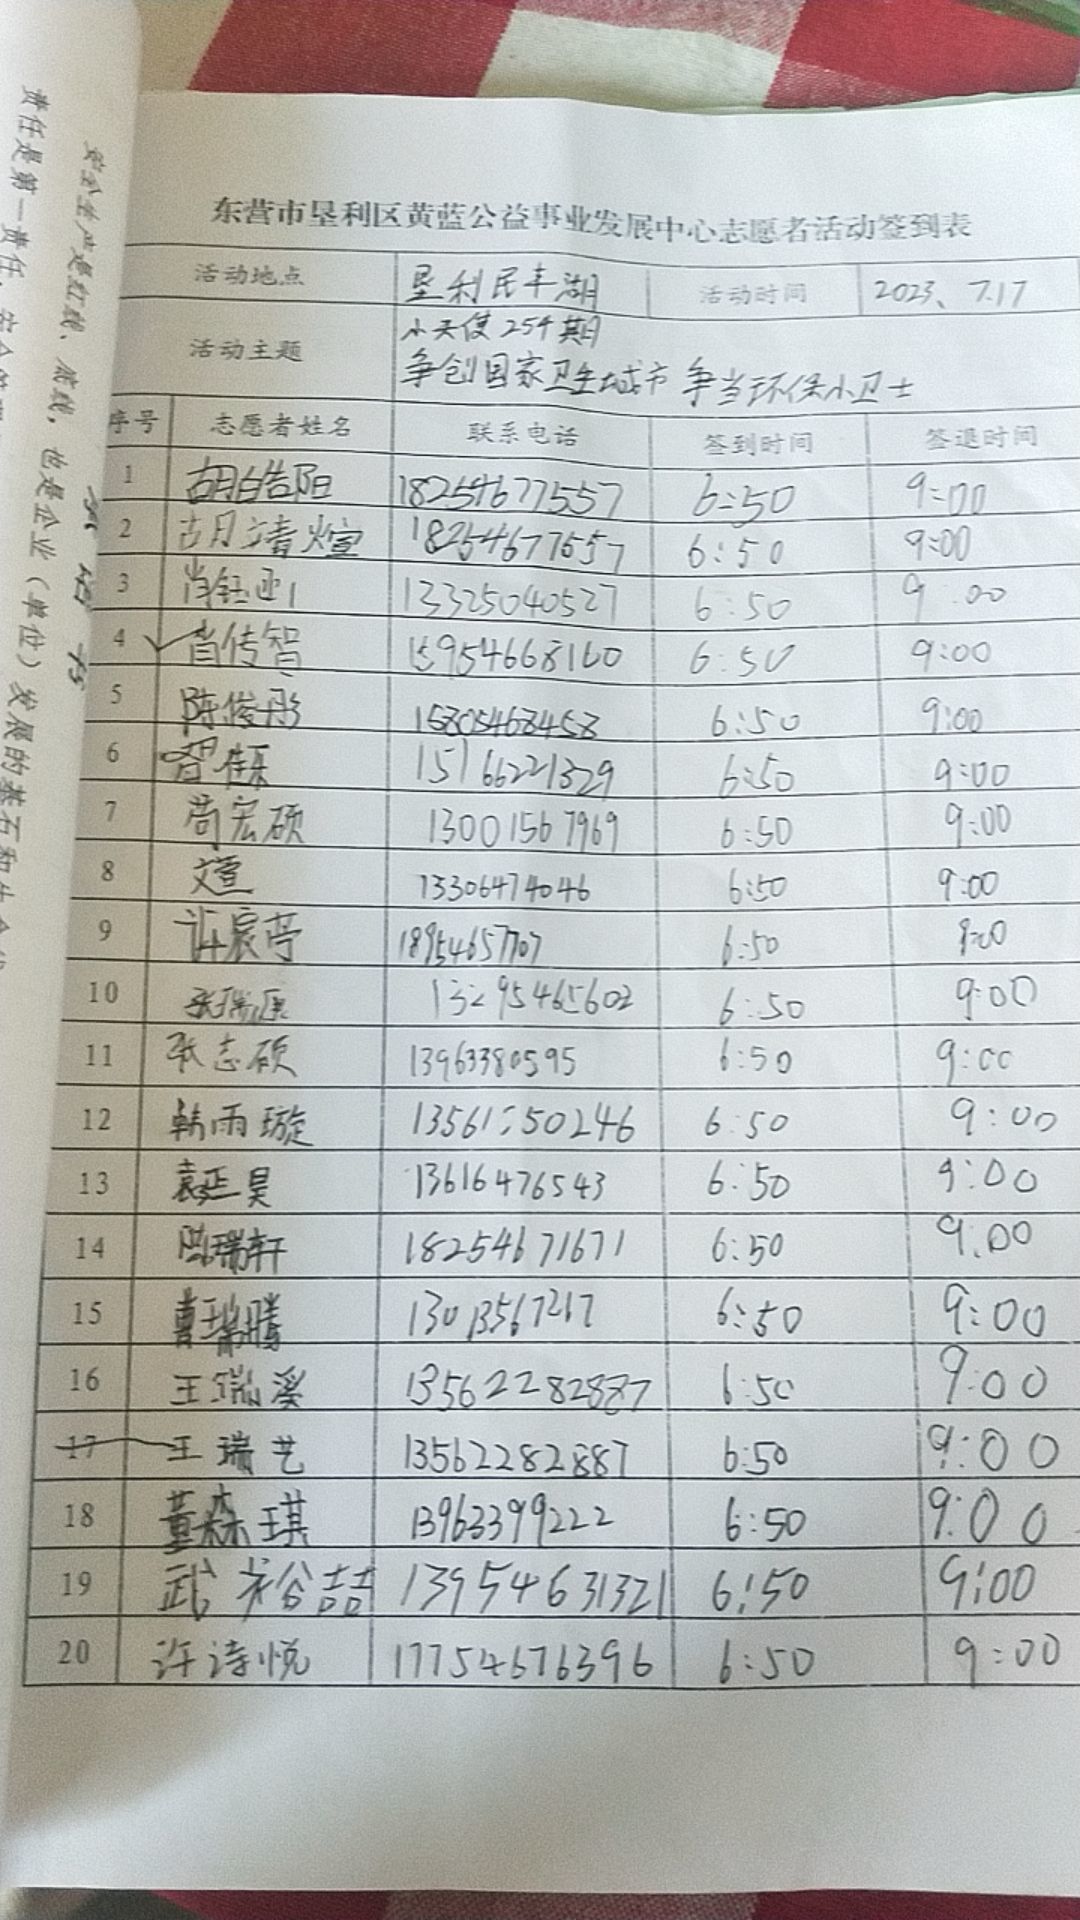 东营市垦利区黄蓝公益事业发展中心志愿者活动签到表
活动地点 垦利民丰湖 活动时间 2023、7.17
活动主题 小天使254期
争创国家卫生城市 争当环保小卫士
序号 志愿者姓名 联系电话 签到时间 签退时间
1 胡皓阳 18254677557 6:50 9:00
2 胡靖煊 18254677557 6:50 9:00
3 肖钰 13325040527 6:50 9:00
4 肖传智 15954668160 6:50 9:00
5 陈俊彤 15805468458 6:50 9:00
6 15166221329 6:50 9:00
7 尚宏硕 13001567969 6:50 9:00
8 文萱 13306474046 6:50 9:00
9 许宸 18954657707 6:50 9:00
10 张瑞 13295465602 6:50 9:00
11 张志硕 13963380595 6:50 9:00
12 韩雨璇 6:50 9:00
13 袁 昊 13616476543 6:50 9:00
14 瑞轩 18254671671 6:50 9:00
15 曹瑞腾 13013567217 6:50 9:00
16 王瑞溪 13562282887 6:50 9:00
17 王瑞艺 13562282887 6:50 9:00
18 董森琪 13963399222 6:50 9:00
19 武裕喆 13954631321 6:50 9:00
20 许诗悦 17754676396 6:50 9:00
安全生产是红线、底线，也是企业（单位）发展的基石和
责任是第一责任，安全